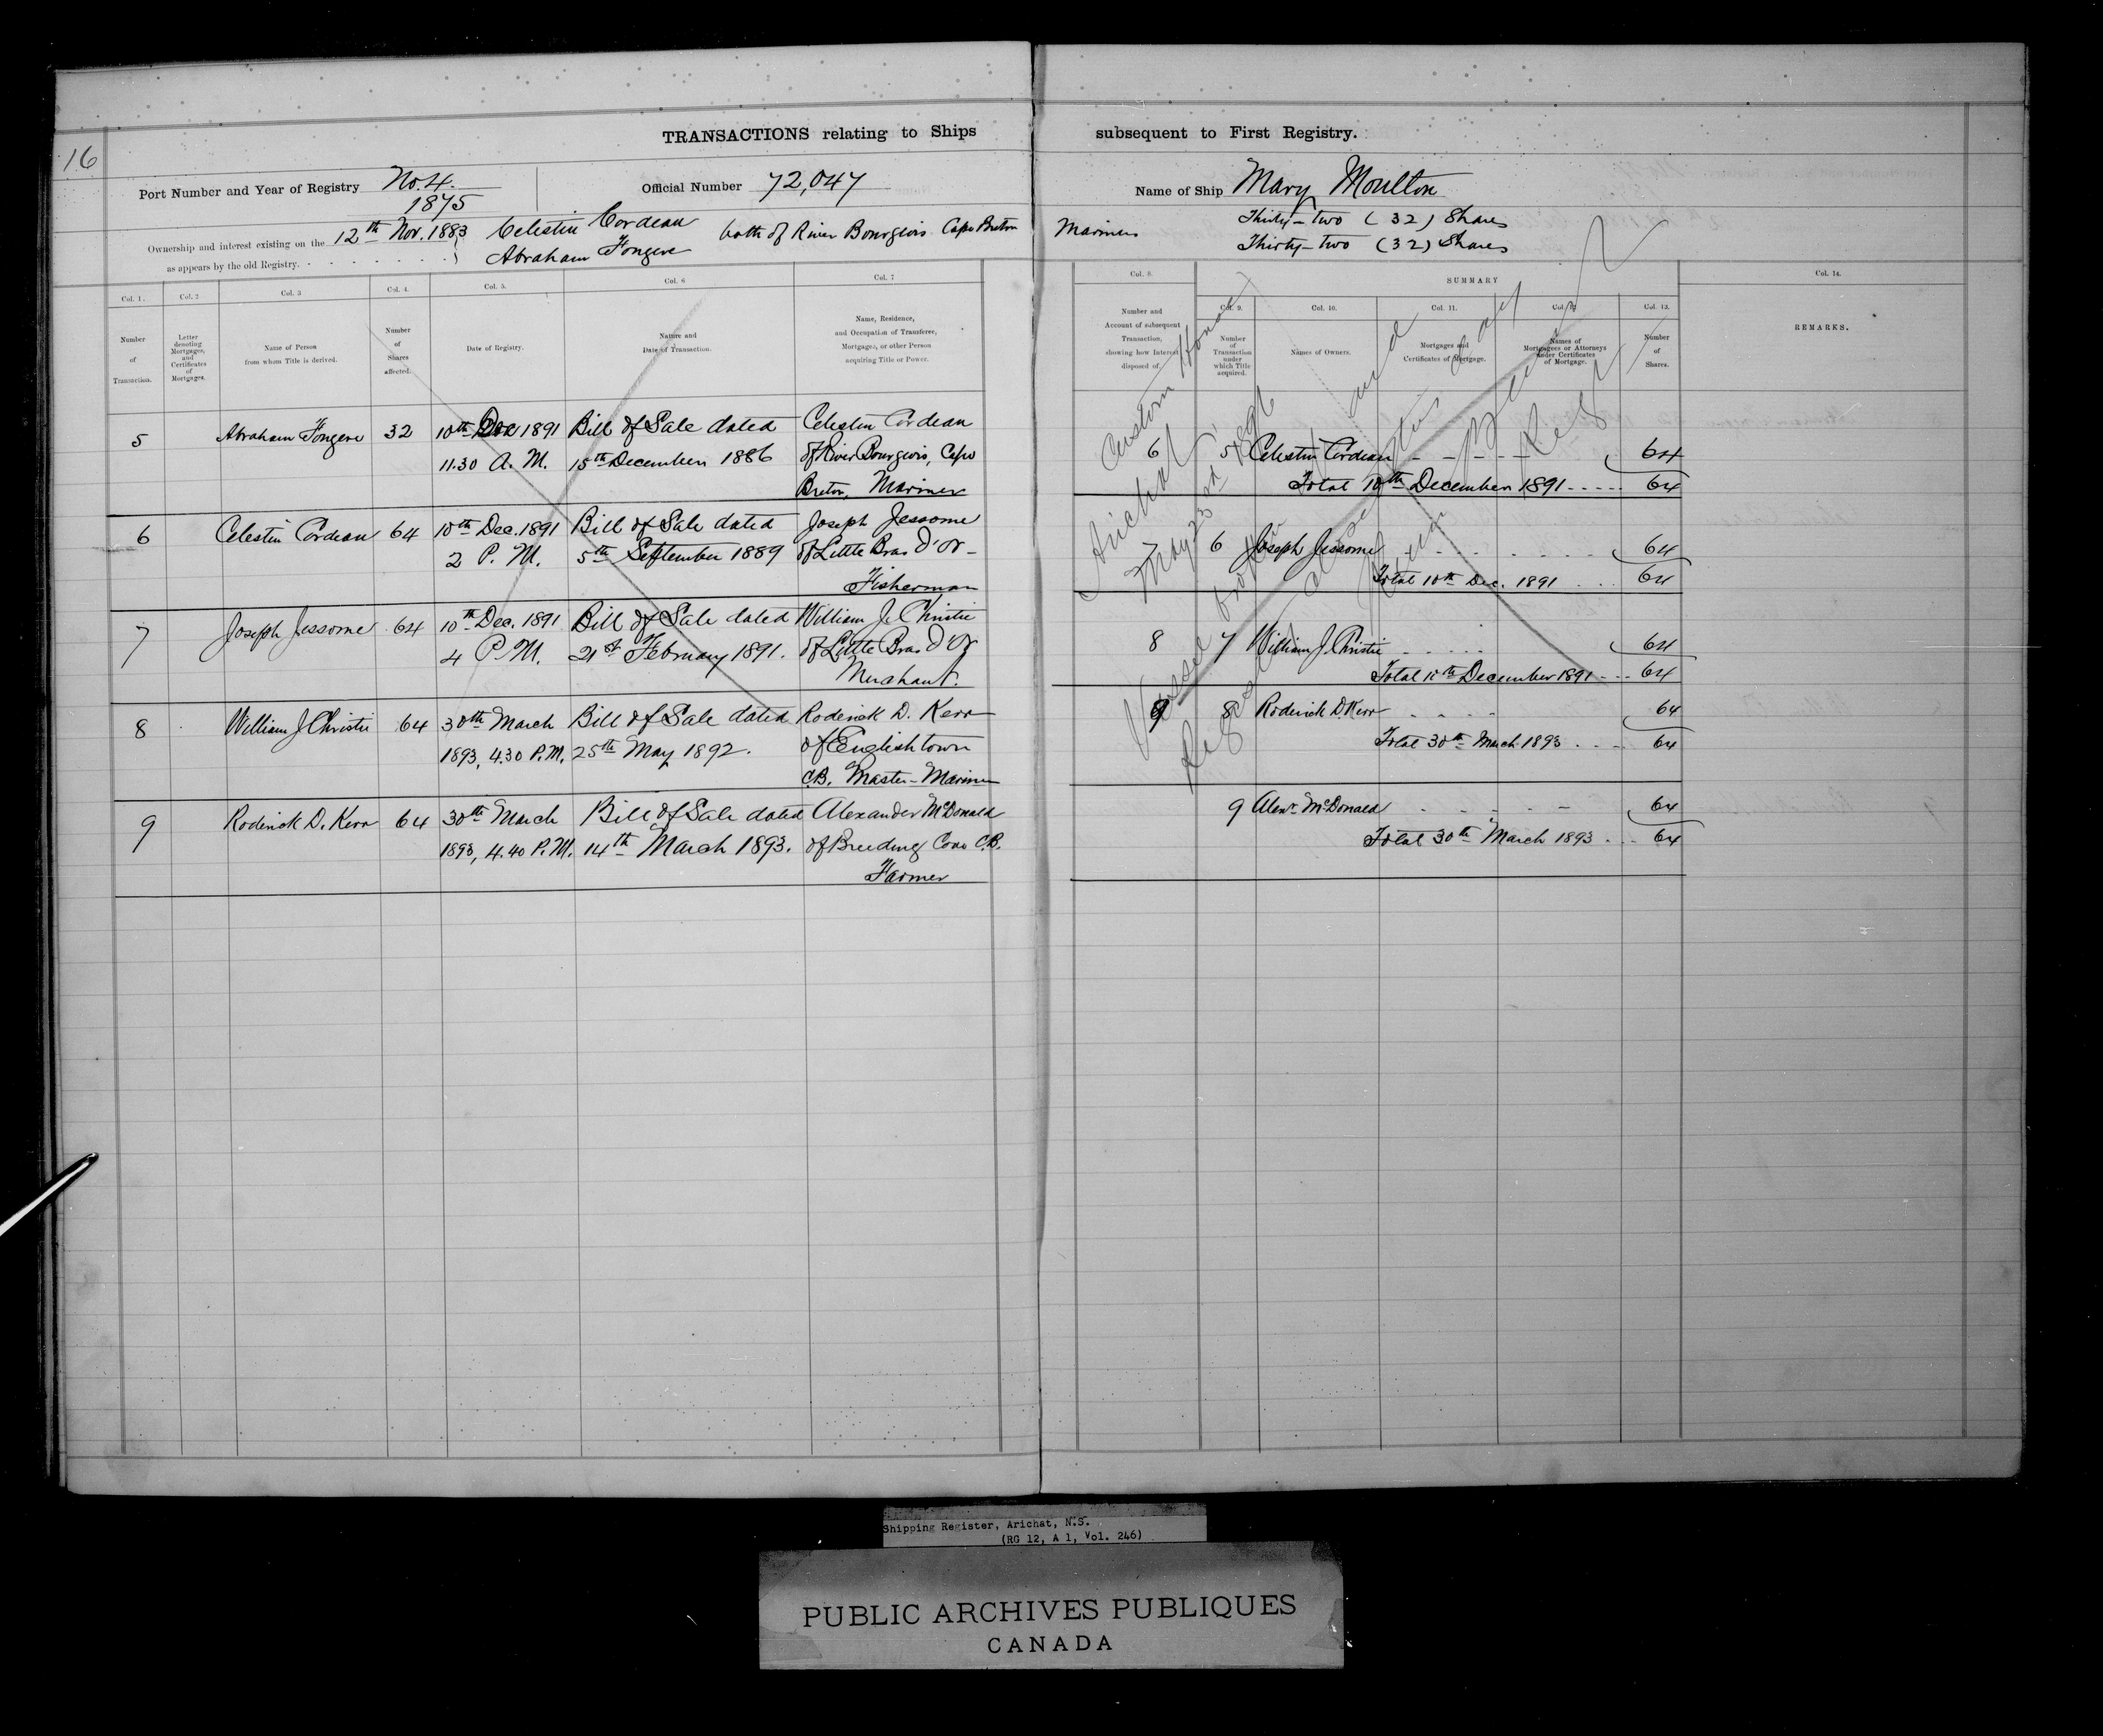 16
TRANSACTIONS relating to Ships subsequent to First Registry.
Port Number and Year of Registry No. 4. 1875
Official Number 72,047
Name of Ship Mary Moulton
Ownership and interest existing on the 12th Nov. 1883
as appears by the old Registry.
Celestin Cordeau
Abraham Fongere
both of River Bourgeois Cape Breton
Mariners
Thirty-two (32) Shares
Thirty-two (32) Shares
Col. 1. Number of Transaction.
Col. 2 Letter denoting Mortgages, and Certificates of Mortgages.
Col. 3 Name of Person from whom Title is derived.
Col. 4. Number of Shares affected.
Col. 5. Date of Registry.
Col. 6 Nature and Date of Transaction.
Col. 7 Name, Residence, and Occupation of Transferee, Mortgagee, or other Person acquiring Title or Power.
5 Abraham Fongere 32 10th Dec 1891 Bill of Sale dated Celestin Cordeau
11.30 A.M. 15th December 1886 of River Bourgeois, Cape
Breton, Mariner
6 Celestin Cordeau 64 10th Dec. 1891 Bill of Sale dated Joseph Jessome
2 P.M. 5th September 1889 of Little Bras D'Or
Fisherman
7 Joseph Jessome 64 10th Dec. 1891 Bill of Sale dated William J. Christie
4 P.M. 21st February 1891. of Little Bras D'Or
Merchant.
8 William J Christie 64 30th March Bill of Sale dated Roderick D. Kerr
1893, 4.30 P.M. 25th May 1892. of Englishtown
C.B. Master-Mariner
9 Roderick D. Kerr 64 30th March Bill of Sale dated Alexander McDonald
1893, 4.40 P.M. 14th March 1893. of Breeding Cove C.B.
Farmer
Col. 8. Number and Account of subsequent Transaction, showing how Interest disposed of.
SUMMARY
Col. 9. Number of Transaction under which Title acquired.
Col. 10. Names of Owners.
Col. 11. Mortgages and Certificates of Mortgage.
Col. 12 Names of Mortgagees or Attorneys under Certificates of Mortgage.
Col. 13. Number of Shares.
Col. 14. REMARKS.
6 5 Celestin Cordeau 64
Total 10th December 1891 64
7 6 Joseph Jessome 64
Total 10th Dec. 1891 64
8 7 William J Christie 64
Total 10th December 1891 64
9 8 Roderick D. Kerr 64
Total 30th March 1893 64
9 Alexr McDonald 64
Total 30th March 1893 64
Vessel broken up and
Register closed this day
Custom House
Arichat
May 23rd 1896
Shipping Register, Arichat, N.S.
(RG 12, A 1, Vol. 246)
PUBLIC ARCHIVES PUBLIQUES
CANADA